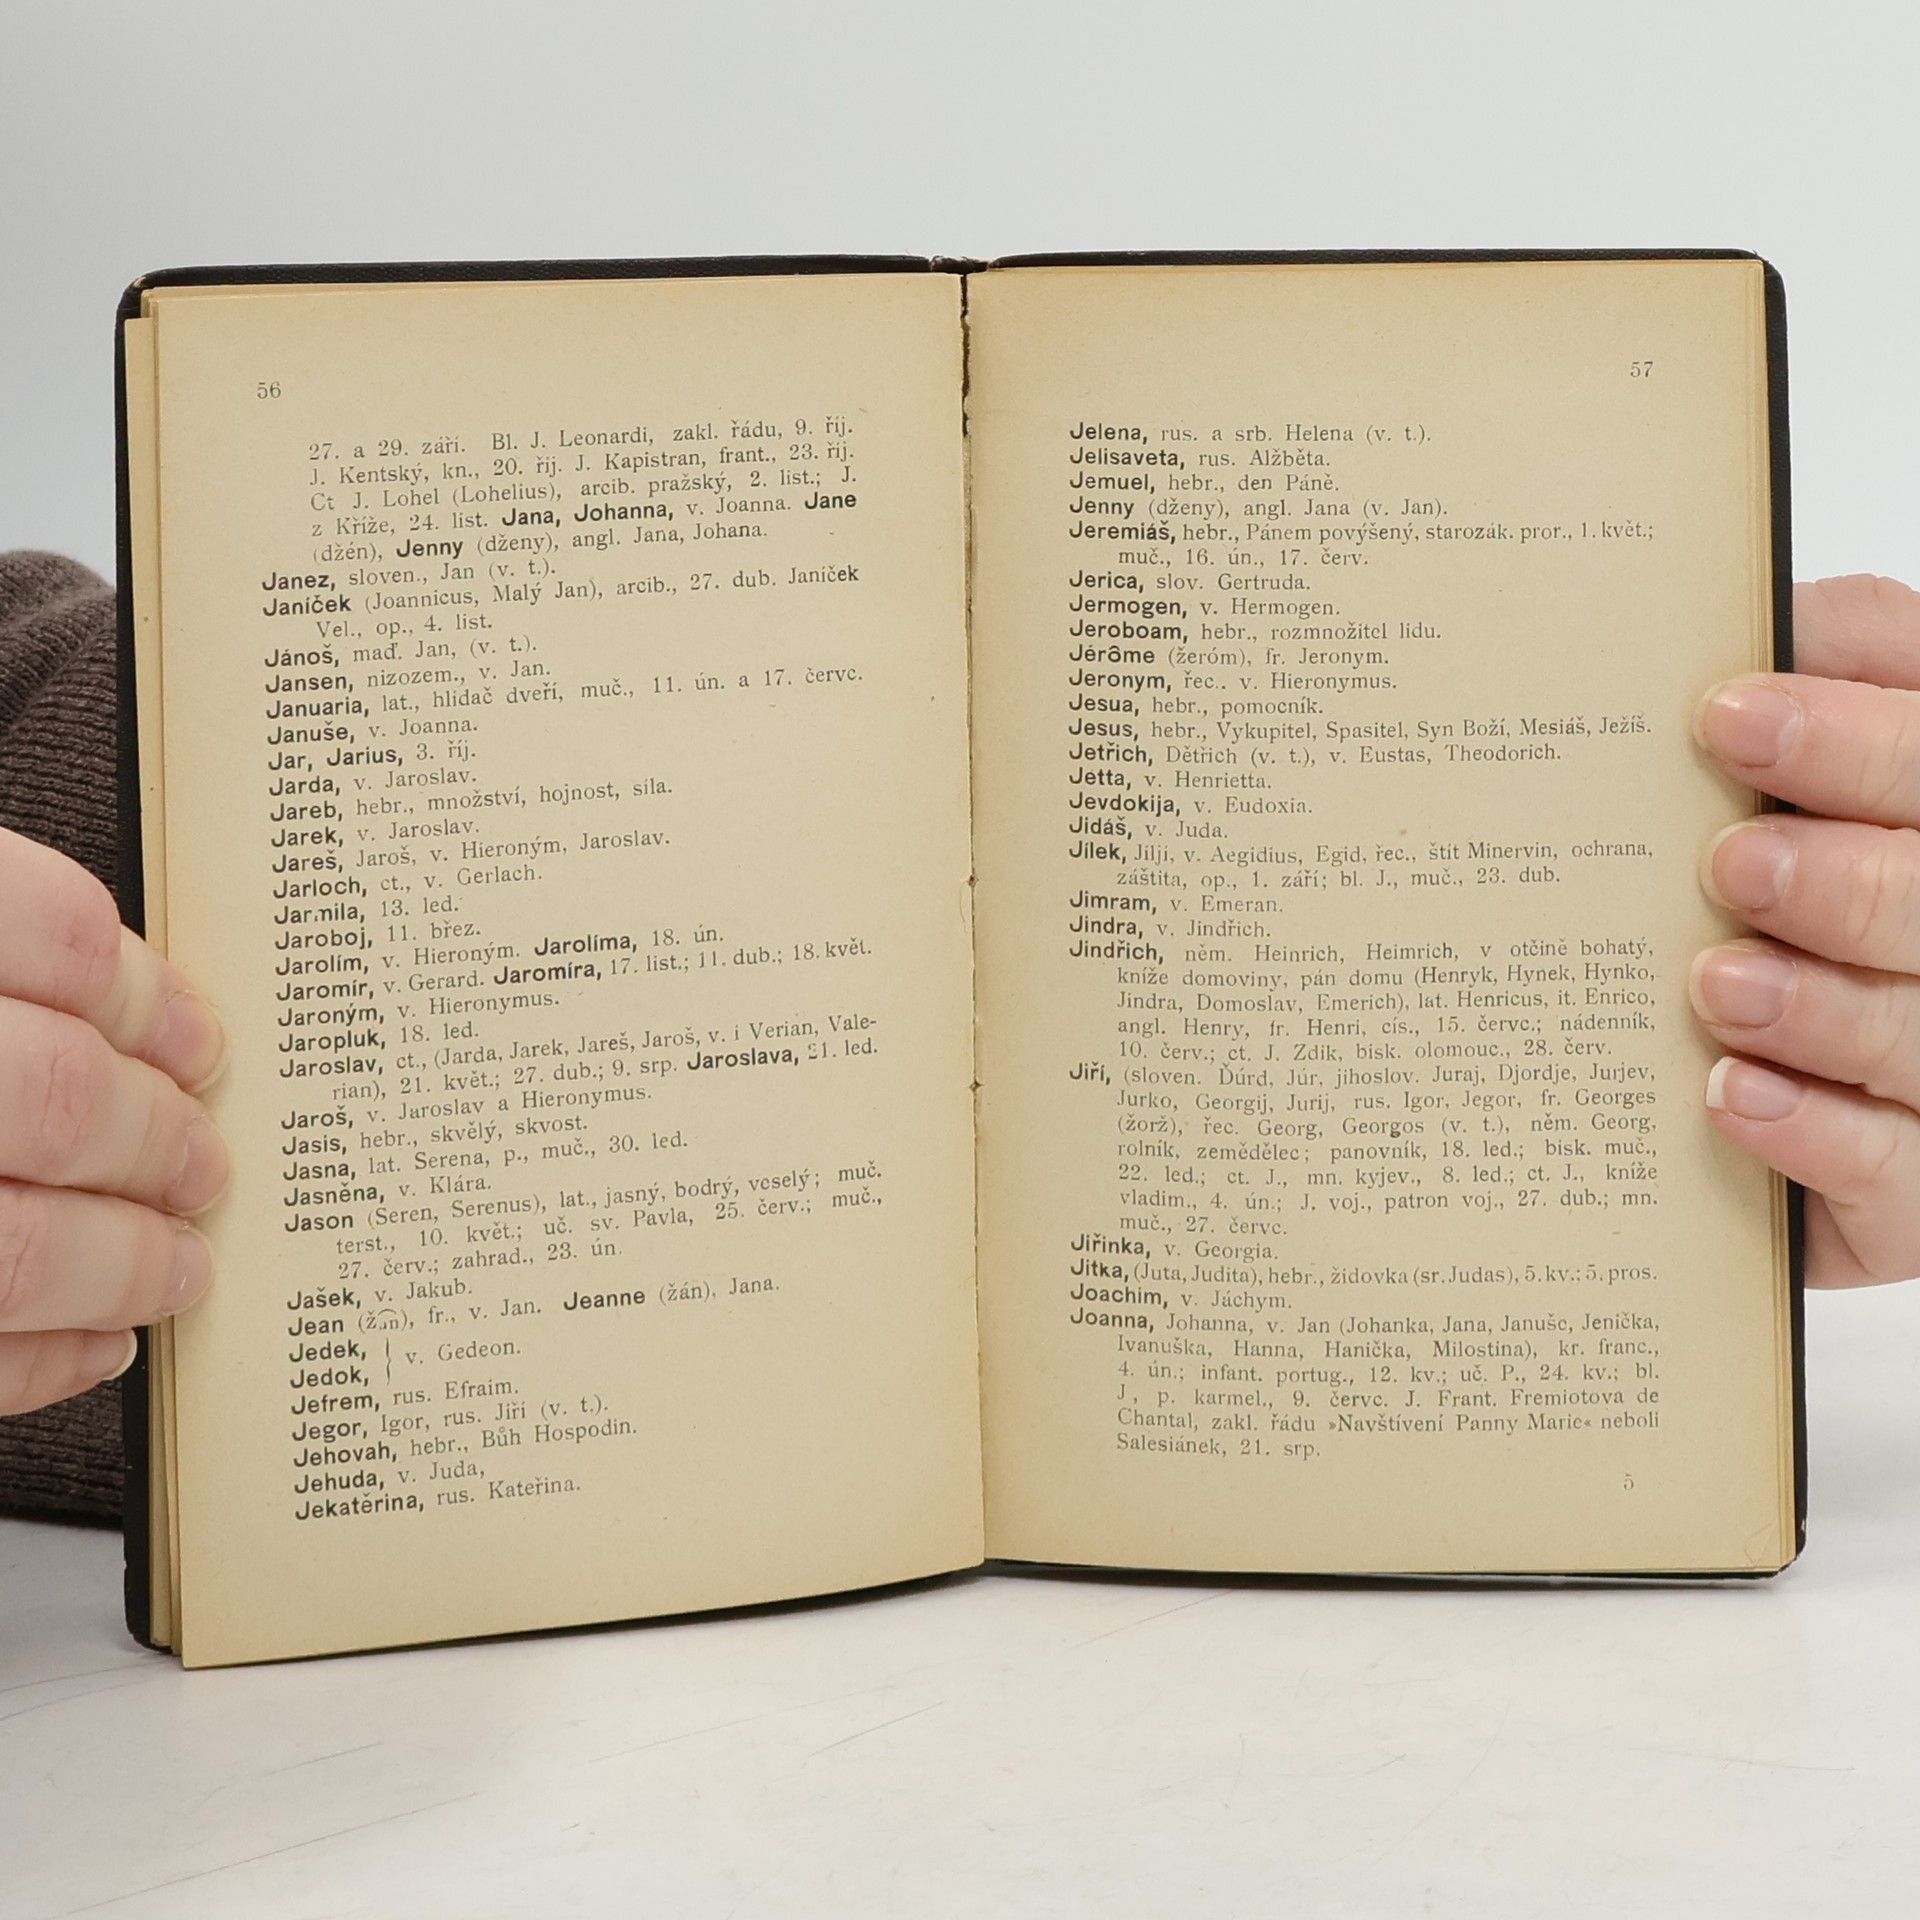 56
27. a 29. září. Bl. J. Leonardi, zakl. řádu, 9. říj.
J. Kentský, kn., 20. říj. J. Kapistran, frant., 23. říj.
Ct J. Lohel (Lohelius), arcib. pražský, 2. list.; J.
z Kříže, 24. list. Jana, Johanna, v. Joanna. Jane
(džén), Jenny (dženy), angl. Jana, Johana.
Janez, sloven., Jan (v. t.).
Janíček (Joannicus, Malý Jan), arcib., 27. dub. Janíček
Vel., op., 4. list.
Jánoš, maď. Jan, (v. t.).
Jansen, nizozem., v. Jan.
Januaria, lat., hlídač dveří, muč., 11. ún. a 17. červc.
Januše, v. Joanna.
Jar, Jarius, 3. říj.
Jarda, v. Jaroslav.
Jareb, hebr., množství, hojnost, síla.
Jarek, v. Jaroslav.
Jareš, Jaroš, v. Hieroným, Jaroslav.
Jarloch, ct., v. Gerlach.
Jarmila, 13. led.
Jaroboj, 11. břez.
Jarolím, v. Hieroným. Jarolíma, 18. ún.
Jaromír, v. Gerard. Jaromíra, 17. list.; 11. dub.; 18. květ.
Jaroným, v. Hieronymus.
Jaropluk, 18. led.
Jaroslav, ct., (Jarda, Jarek, Jareš, Jaroš, v. i Verian, Vale-
rian), 21. květ.; 27. dub.; 9. srp. Jaroslava, 21. led.
Jaroš, v. Jaroslav a Hieronymus.
Jasis, hebr., skvělý, skvost.
Jasna, lat. Serena, p., muč., 30. led.
Jasněna, v. Klára.
Jason (Seren, Serenus), lat., jasný, bodrý, veselý; muč.
terst., 10. květ.; uč. sv. Pavla, 25. červ.; muč.,
27. červ.; zahrad., 23. ún.
Jašek, v. Jakub.
Jean (žan), fr., v. Jan. Jeanne (žán), Jana.
Jedek, } v. Gedeon.
Jedok,
Jefrem, rus. Efraim.
Jegor, Igor, rus. Jiří (v. t.).
Jehovah, hebr., Bůh Hospodin.
Jehuda, v. Juda,
Jekatěrina, rus. Kateřina.
57
Jelena, rus. a srb. Helena (v. t.).
Jelisaveta, rus. Alžběta.
Jemuel, hebr., den Páně.
Jenny (dženy), angl. Jana (v. Jan).
Jeremiáš, hebr., Pánem povýšený, starozák. pror., 1. květ.;
muč., 16. ún., 17. červ.
Jerica, slov. Gertruda.
Jermogen, v. Hermogen.
Jeroboam, hebr., rozmnožitel lidu.
Jérôme (žeróm), fr. Jeronym.
Jeronym, řec.. v. Hieronymus.
Jesua, hebr., pomocník.
Jesus, hebr., Vykupitel, Spasitel, Syn Boží, Mesiáš, Ježíš.
Jetřich, Dětřich (v. t.), v. Eustas, Theodorich.
Jetta, v. Henrietta.
Jevdokija, v. Eudoxia.
Jidáš, v. Juda.
Jílek, Jiljí, v. Aegidius, Egid, řec., štít Minervin, ochrana,
záštita, op., 1. září; bl. J., muč., 23. dub.
Jimram, v. Emeran.
Jindra, v. Jindřich.
Jindřich, něm. Heinrich, Heimrich, v otčině bohatý,
kníže domoviny, pán domu (Henryk, Hynek, Hynko,
Jindra, Domoslav, Emerich), lat. Henricus, it. Enrico,
angl. Henry, fr. Henri, cís., 15. červc.; nádenník,
10. červ.; ct. J. Zdik, bisk. olomouc., 28. červ.
Jiří, (sloven. Ďúrd, Júr, jihoslov. Juraj, Djordje, Jurjev,
Jurko, Georgij, Jurij, rus. Igor, Jegor, fr. Georges
(žorž), řec. Georg, Georgos (v. t.), něm. Georg,
rolník, zemědělec; panovník, 18. led.; bisk. muč.,
22. led.; ct. J., mn. kyjev., 8. led.; ct. J., kníže
vladim., 4. ún.; J. voj., patron voj., 27. dub.; mn.
muč., 27. červc.
Jiřinka, v. Georgia.
Jitka, (Juta, Judita), hebr., židovka (sr. Judas), 5. kv.; 5. pros.
Joachim, v. Jáchym.
Joanna, Johanna, v. Jan (Johanka, Jana, Januše, Jenička,
Ivanuška, Hanna, Hanička, Milostina), kr. franc.,
4. ún.; infant. portug., 12. kv.; uč. P., 24. kv.; bl.
J , p. karmel., 9. červc. J. Frant. Fremiotova de
Chantal, zakl. řádu »Navštívení Panny Marie« neboli
Salesiánek, 21. srp.
5